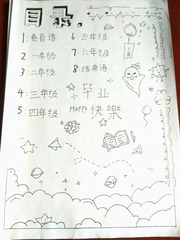 目录
1:卷首语
2:一年级
3:二年级
4:三年级
5:四年级
6:五年级
7:六年级
8:结束语
毕业
Happy快樂